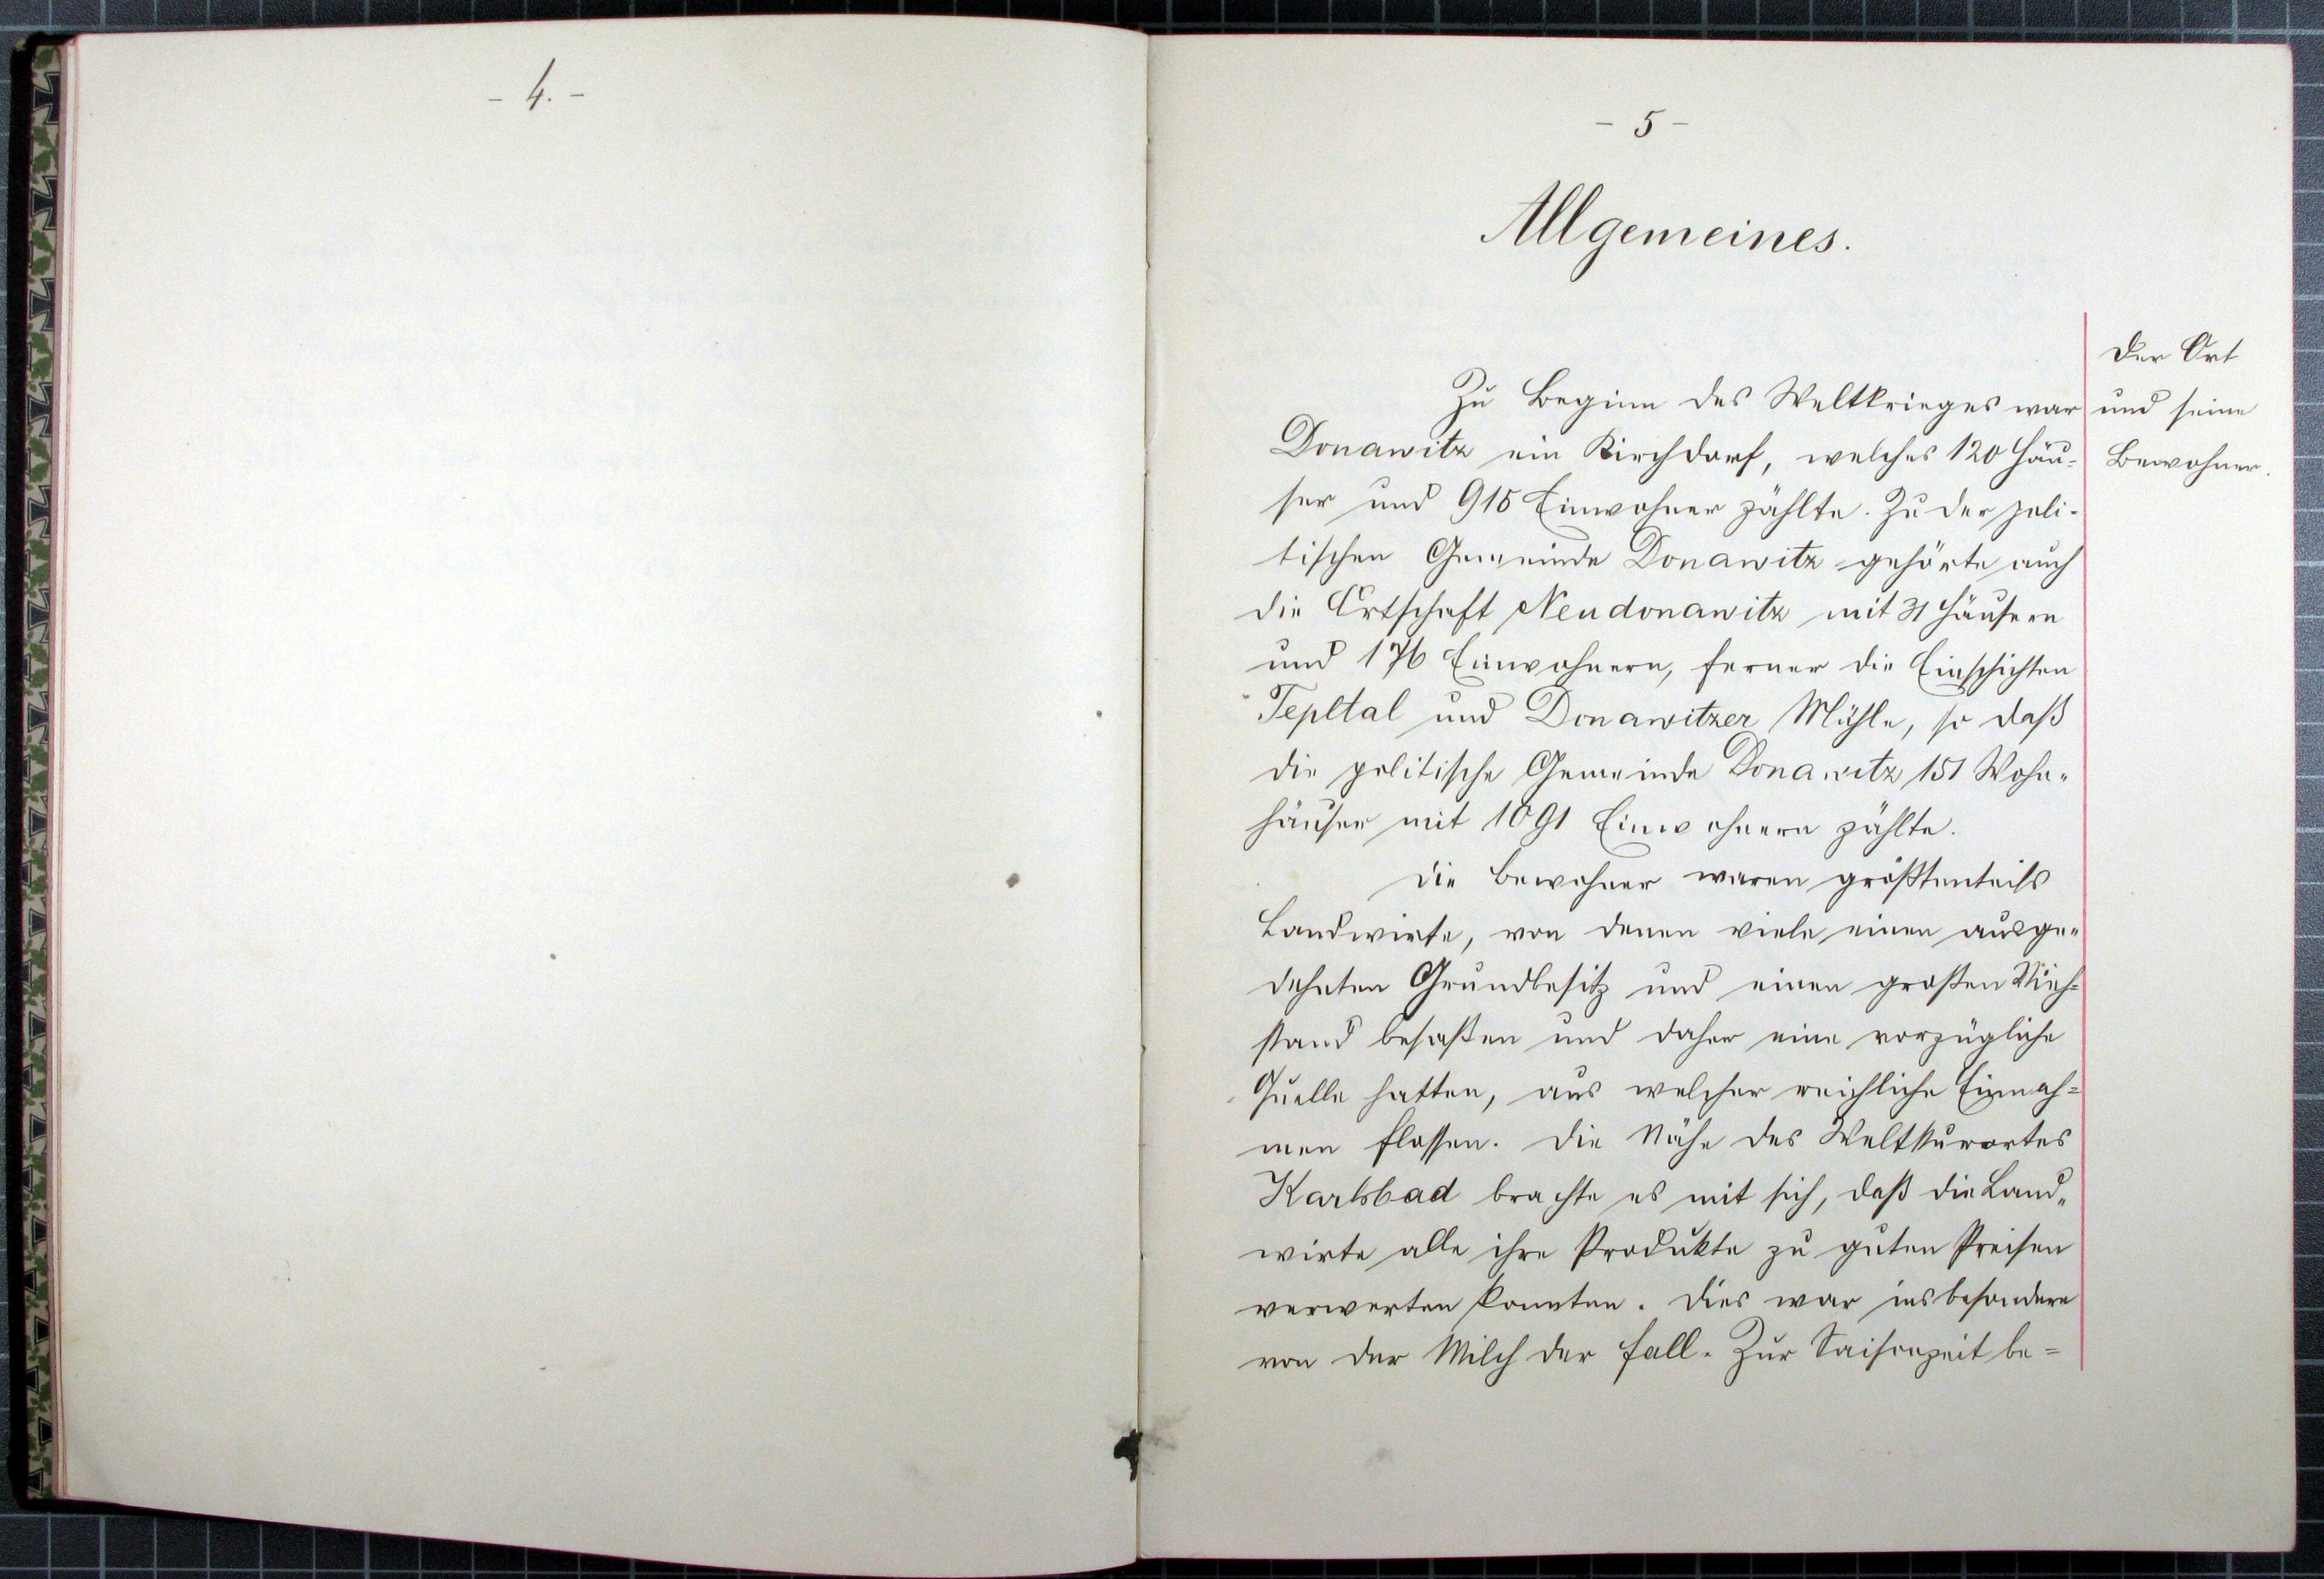 - 4. -
- 5 -
Allgemeines.
Der Ort
und seine
Bewohner.
Zu Beginn des Weltkrieges war
Donawitz ein Kirchdorf, welches 120 Häu-
ser und 915 Einwohner zählte. Zu der poli-
tischen Gemeinde Donawitz gehörte auch
die Ortschaft Neudonawitz mit 31 Häusern
und 176 Einwohnern, ferner die Einschichten
Tepltal und Donawitzer Mühle, so daß
die politische Gemeinde Donawitz 151 Wohn-
häuser mit 1091 Einwohnern zählte.
Die Bewohner waren größtenteils
Landwirte, von denen viele einen ausge-
dehnten Grundbesitz und einen großen Vieh-
stand besaßen und daher eine vorzügliche
Quelle hatten, aus welcher reichliche Einnah-
men flossen. Die Nähe des Weltkurortes
Karlsbad brachte es mit sich, daß die Land-
wirte alle ihre Produkte zu guten Preisen
verwerten konnten. Dies war insbesondere
von der Milch der Fall. Zur Saisonzeit be-